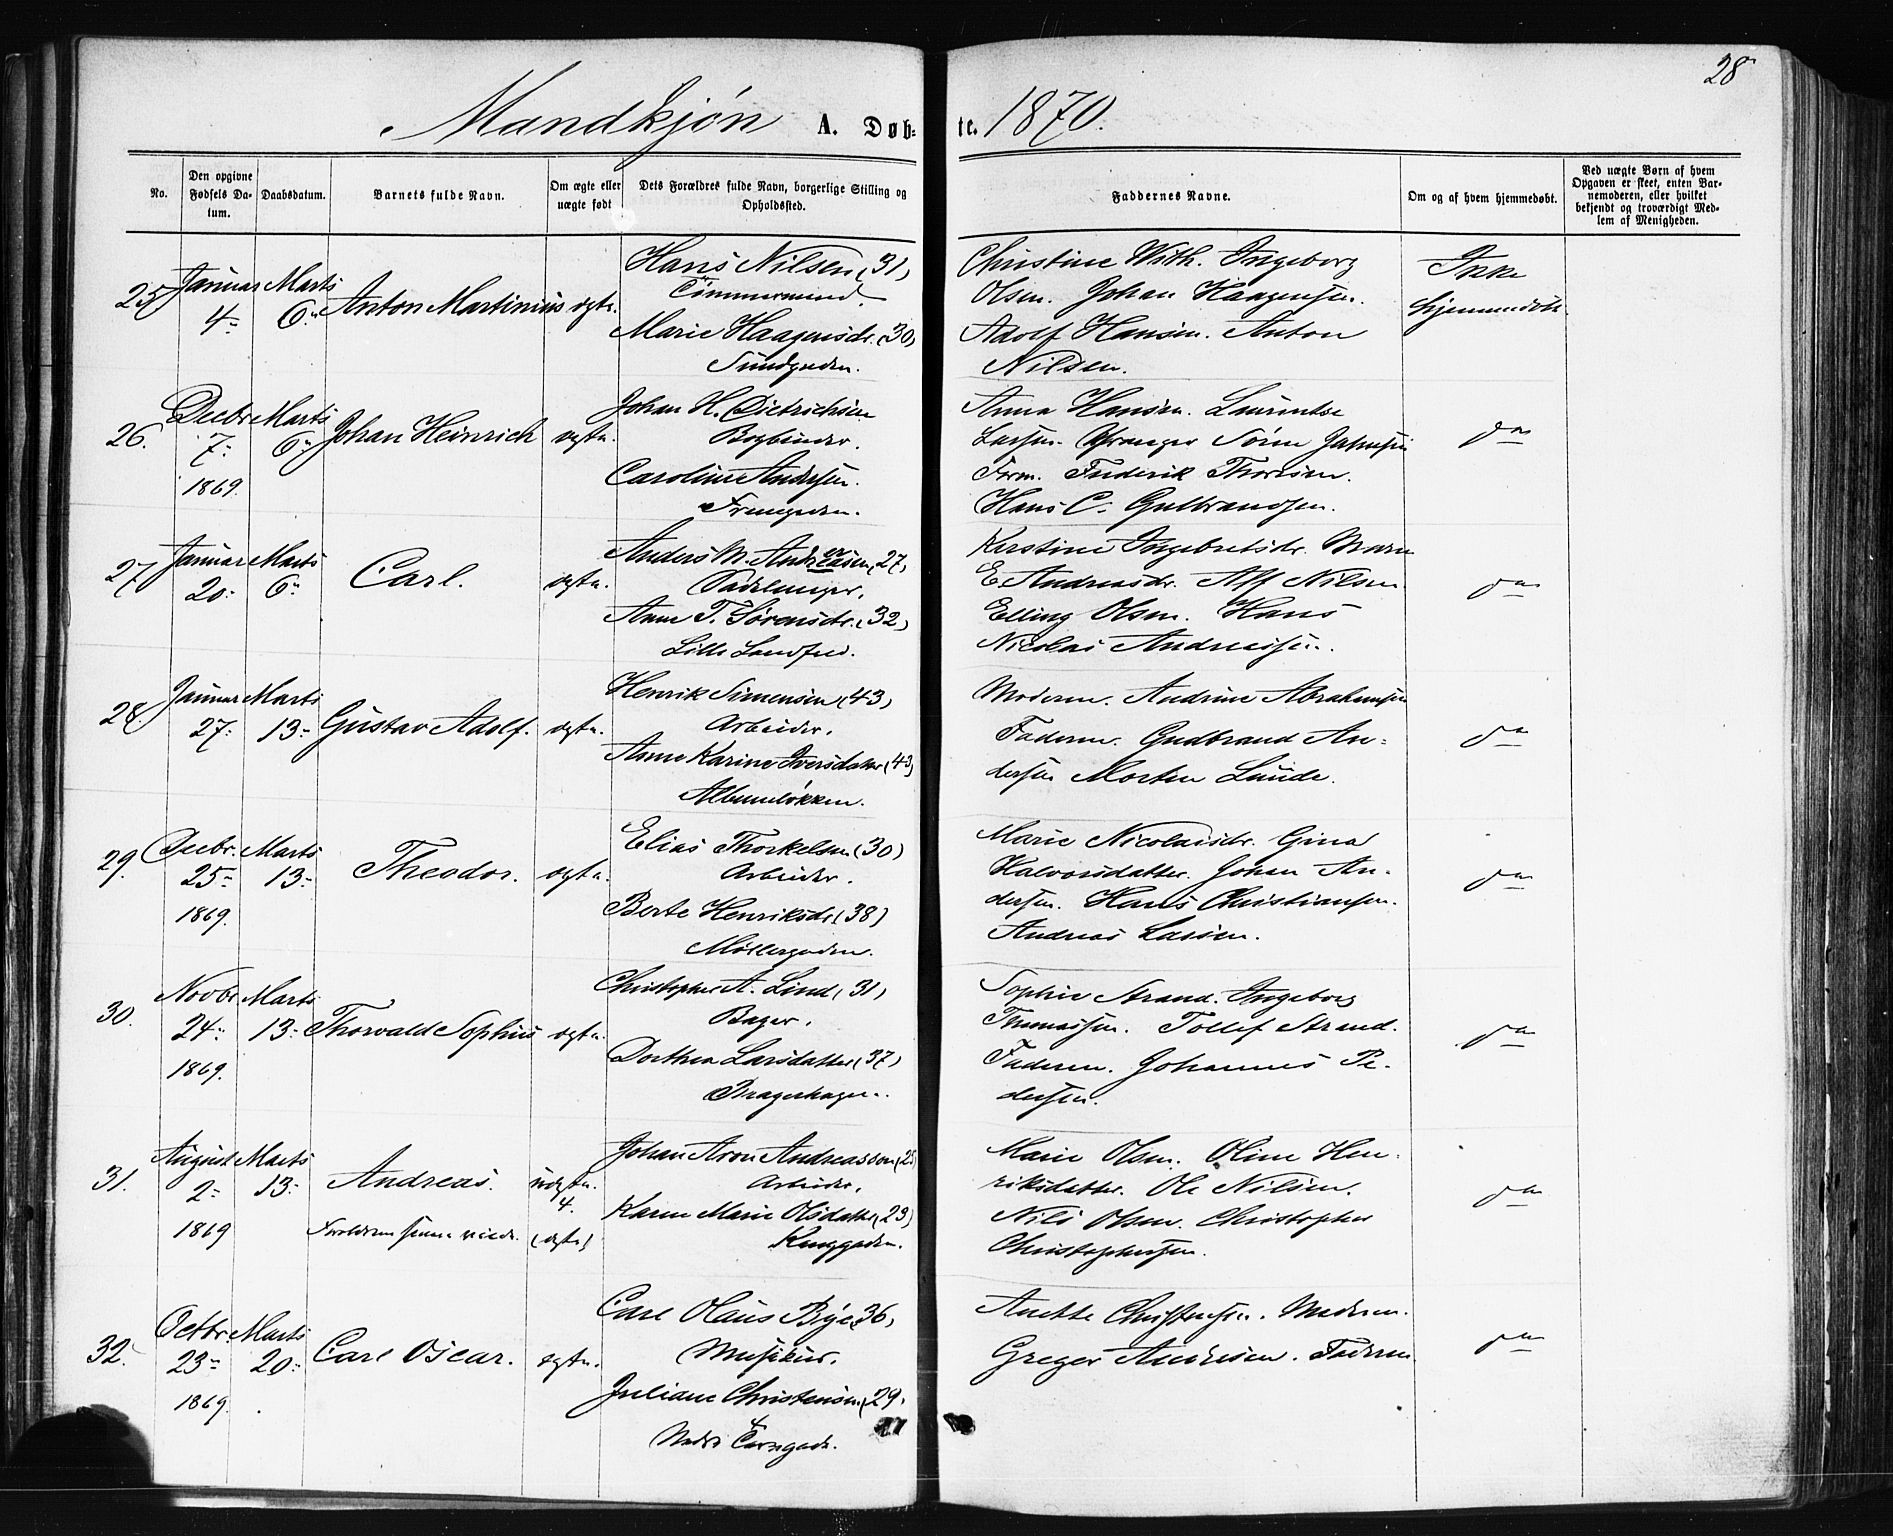 28
Mandkjøn A. Døb- te. 1870.
No.
Den opgivne Fødsels Da- tum.
Daabsdatum.
Barnets fulde Navn.
Om ægte eller uægte født
Dets Forældres fulde Navn, borgerlige Stilling og Opholdssted.
Faddernes Navne.
Om og af hvem hjemmedøbt.
Ved uægte Børn af hvem Opgaven er skeet, enten Bar- nemoderen, eller hvilket bekjendt og troværdigt Med- lem af Menigheden.
25 Januar 4 Marts 6 Anton Martinius ægte.
Hans Nilsen (31)
Tømmermand.
Marie Haagensdr. (30)
Sundgaden.
Christine With. Ingeborg
Olsen. Johan Haagensen.
Adolf Hansen. Anton
Nilsen.
Ikke
hjemmedøbt
26. Decbr 7 1869. Marts 6 Johan Heinrich ægte.
Johan H. Dietrichsen
Bogbinder.
Caroline Andersen.
Anna Hansen. Laurentse
Larsen. Søren
Frederik Thoresen.
Hans C. Gulbrandsen.
do
27 Januar 20 Marts 6 Carl. ægte.
Anders M. Andreasen (27)
Anne T. Sørensdr. (32)
Lille Landfald.
Kirstine Ingebretsdr. Maren
E. Andreasdr. Alf Nilsen
Elling Olsen. Hans
Nicolai Andreassen.
do
28. Januar 27 Marts 13 Gustav Adolf. ægte.
Henrik Simensen (43)
Arbeider.
Anne Karine Iversdatter (43)
Albumløkken.
Moderen. Andrine Abrahamsen
Faderen. Gudbrand An-
dersen Morten Lunde.
do
29. Decbr. 25 1869. Marts 13 Theodor. ægte.
Elias Thorkelsen (30)
Arbeider.
Berte Henriksdr (38)
Møllergaden.
Marie Nicolaisdr. Gina
Halvorsdatter. Johan An-
dersen. Hans Christiansen.
Andreas Larsen.
do
30. Novbr 24 1869. Marts 13 Thorvald Sophus ægte.
Christopher A. Lind (31)
Bager.
Dorthea Larsdatter (37)
Bragerhagen.
Sophie Strand. Ingeborg
Thomassen. Tollef Strand.
Faderen. Johannes Pe-
dersen.
do
31. August 2 1869 Marts 13 Andreas. uægte. 4.
Forældrene senere viede. (ægte)
Johan Aron Andreasson (25)
Arbeider.
Karen Marie Olsdatter (23)
Kruggaden.
Marie Olsen. Oline Hen-
riksdatter. Ole Nilsen.
Nils Olsen. Christopher
Christophersen.
do
32. Octbr. 23 1869. Marts 20 Carl Oscar. ægte.
Carl Olaus Bye (36)
Musikus.
Juliane Christensen (29)
Nedre Torvgade.
Anette Christensen. Moderen.
Greger Andresen. Faderen
do